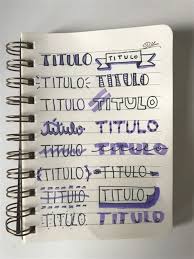 TITULO TITULO
TITULO TITULO
TITULO TITULO
Título TITULO
TITULO TITULO
TITULO TITULO
TITULO TITULO
TITULO TITULO